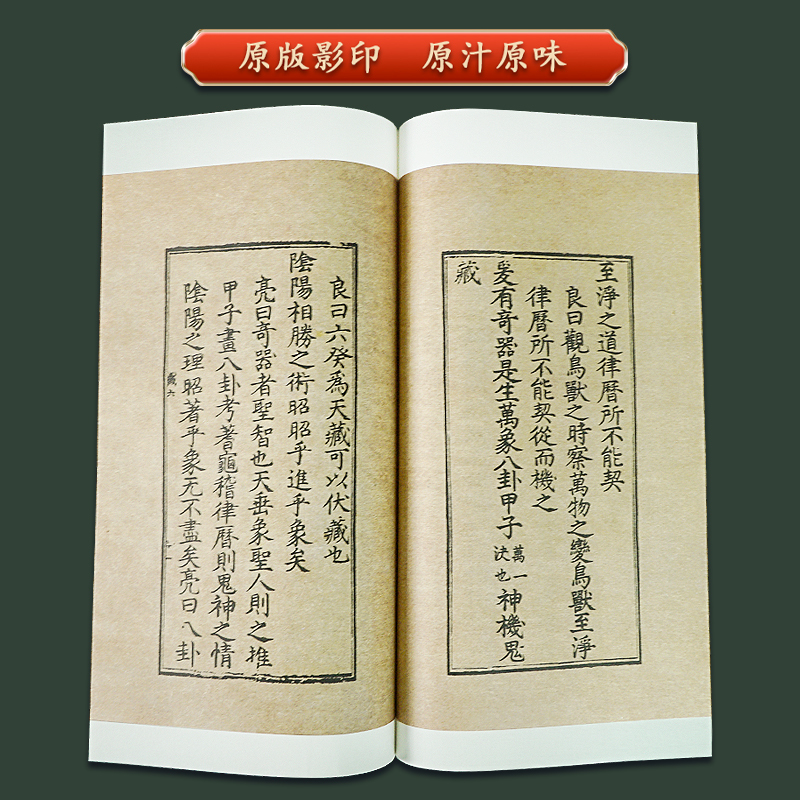 原版影印 原汁原味
至淨之道律曆所不能契
良曰觀鳥獸之時察萬物之變鳥獸至淨
律曆所不能契從而機之
爰有奇器是生萬象八卦甲子萬一決也神機鬼
藏
良曰六癸為天藏可以伏藏也
陰陽相勝之術昭昭乎進乎象矣
亮曰奇器者聖智也天垂象聖人則之推
甲子畫八卦考蓍龜稽律曆則鬼神之情
陰陽之理昭著乎象无不盡矣亮曰八卦
藏六